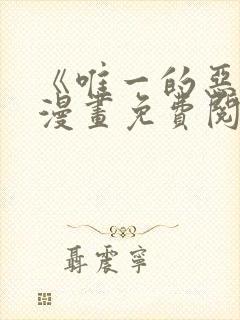 《唯一的恶
漫画免费阅
聂震宁